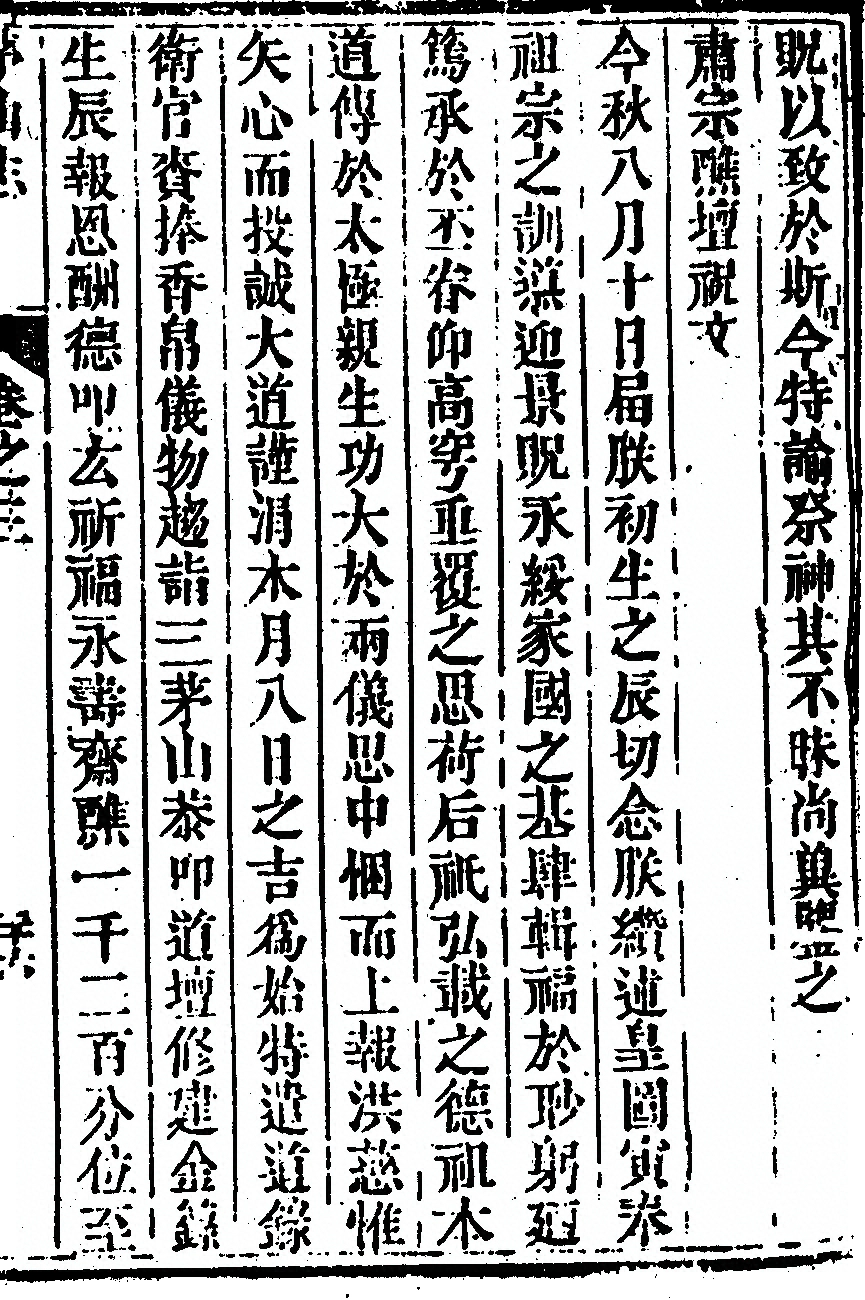 貺以致於斯今特諭祭神其不昧尚冀鑒之
肅宗醮壇祝文
今秋八月十日屆朕初生之辰切念朕纘述皇圖寅奉
祖宗之訓滇迎景貺永綏家國之基肆輯福於眇躬廻
篤承於丕眷仰高穹垂覆之思荷后祇弘載之德祇本
道傳於太極親生功大於兩儀思中悃而上報洪慈惟
矢心而投誠大道謹涓本月八日之吉為始特遣道錄
衛官賫捧香帛儀物趨詣三茅山恭叩道壇修建金籙
生辰報恩酬德叩玄祈福永壽齋醮一千二百分位至
茅山志
卷之三